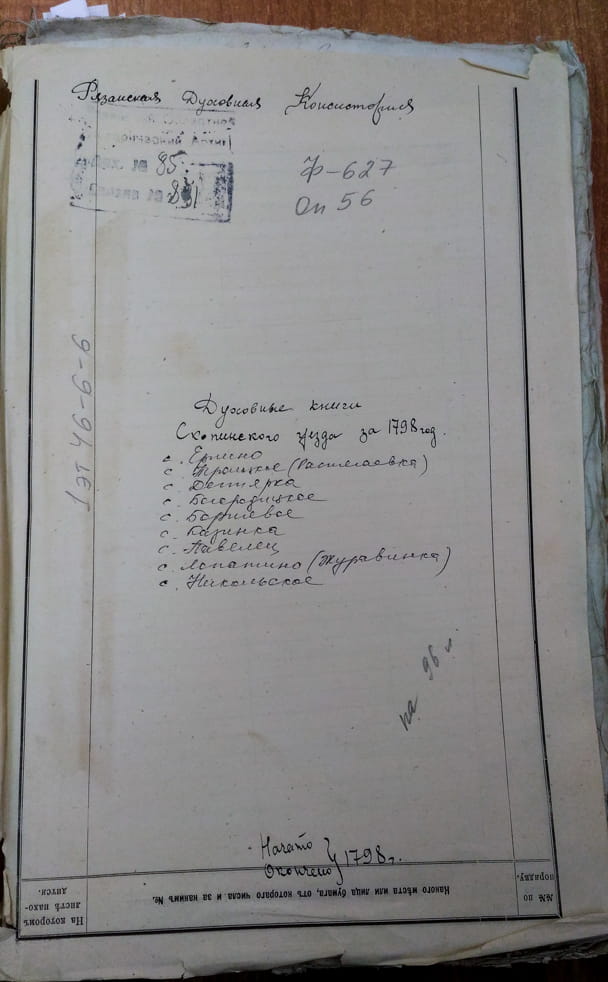 Рязанская Духовная Консистория
85
Ф-627
Оп 56
1 эт 46-6-6
Духовные книги
Скопинского уезда за 1798 год.
с. Ерлино
с. Троицкое (Расписаевка)
с. Дегтярка
с. Богородицкое
с. Боршевое
с. Казинка
с. Павелец
с. Лопатино (Журавинка)
с. Никольское
на 96 л.
Начато
Окончено } 1798 г.
№№ по порядку.
Какого мѣста или лица бумага, отъ котораго числа и за какимъ №.
На которомъ листѣ находится.